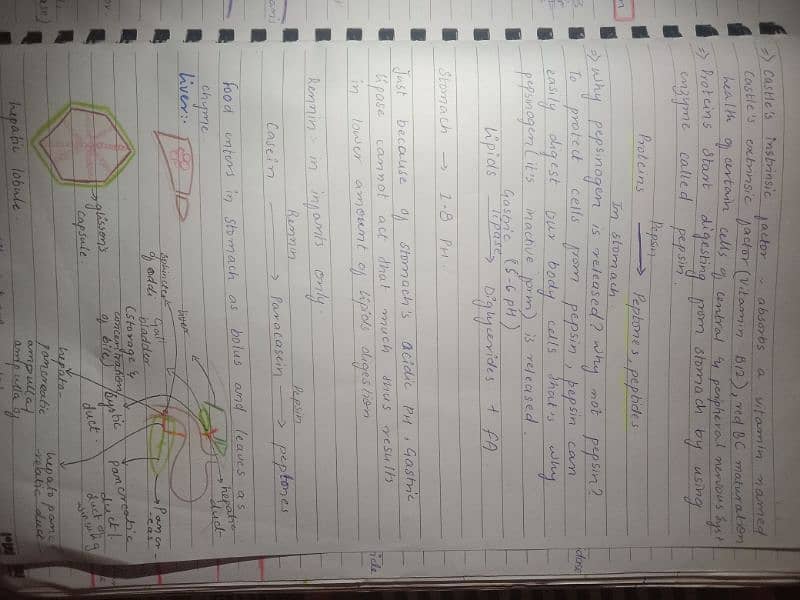 =) Castle's instrinsic factor :- absorbs a vitamin named
Castle's extrinsic factor (Vitamin B12), red BC maturation
health of certain cells of central & peripheral nervous syst
=) Proteins start digesting from stomach by using
enzyme called pepsin.
Proteins Pepsin → Peptones, peptides
In stomach
=) Why pepsinogen is released? why not pepsin?
To protect cells from pepsin, pepsin can
easily digest our body cells that's why
pepsinogen (its inactive form) is released.
Lipids Gastric lipase → Diglycerides + FA
(5-6 pH)
Stomach → 1.8 PH.
Just because of stomach's acidic PH, Gastric
lipase cannot act that much thus results
in lower amount of lipids digestion
Rennin :- in infants only.
Casein Rennin → Paracasein Pepsin → peptones
food enters in stomach as bolus and leaves as
chyme.
liver:-
glisson's
capsule.
hepatic lobule.
liver
sphincter
of oddi
Gall
bladder
(storage &
concentration
of bile)
cystic
duct.
hepatic
duct
Pancr
eas
pancreatic
duct /
duct of
hepato-
pancreatic
ampulla/
hepato panc
reatic duct